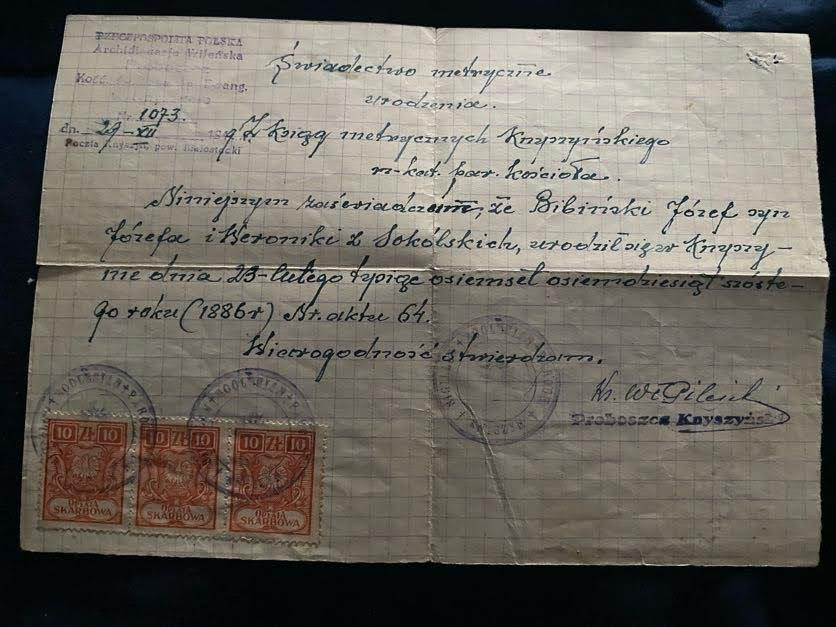 RZECZPOSPOLITA POLSKA
Archidiecezja Wileńska
Nr. 1073.
dn. 29-XII 194
Poczta Knyszyn, pow. Białostocki
Świadectwo metryczne
urodzenia.
Z ksiąg metrycznych Knyszyńskiego
rz-kat. par. kościoła.
Niniejszym zaświadczam, że Bibiński Józef syn
Józefa i Weroniki z Sokólskich, urodził się w Knyszy-
nie dnia 23-lutego tysiąc osiemset osiemdziesiąt szóste-
go roku (1886r) Nr. aktu 64.
Wiarogodność stwierdzam.
Ks. Wł Pilecki
Proboszcz Knyszyński
10 ZŁ 10
OPŁATA
SKARBOWA
10 ZŁ 10
OPŁATA
SKARBOWA
10 ZŁ 10
OPŁATA
SKARBOWA